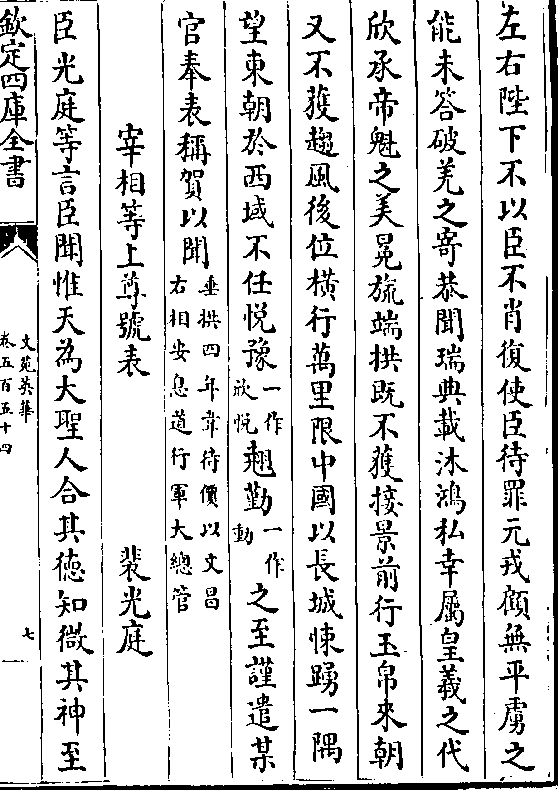 左右陛下不以臣不肖復使臣待罪元戎顧無平虜之
能未答破羌之寄恭聞瑞典載沐鴻私幸屬皇羲之代
欣承帝魁之美冕旒端拱既不獲接景前行玉帛來朝
又不獲趨風後位橫行萬里限中國以長城悚踴一隅
望東朝於西域不任悅豫一作欣悅翹勤一作動之至謹遣某
官奉表稱賀以聞垂拱四年韋待價以文昌右相安息道行軍大總管
宰相等上尊號表 裴光庭
臣光庭等言臣聞惟天為大聖人合其德知微其神至
欽定四庫全書
文苑英華
卷五百五十四
七